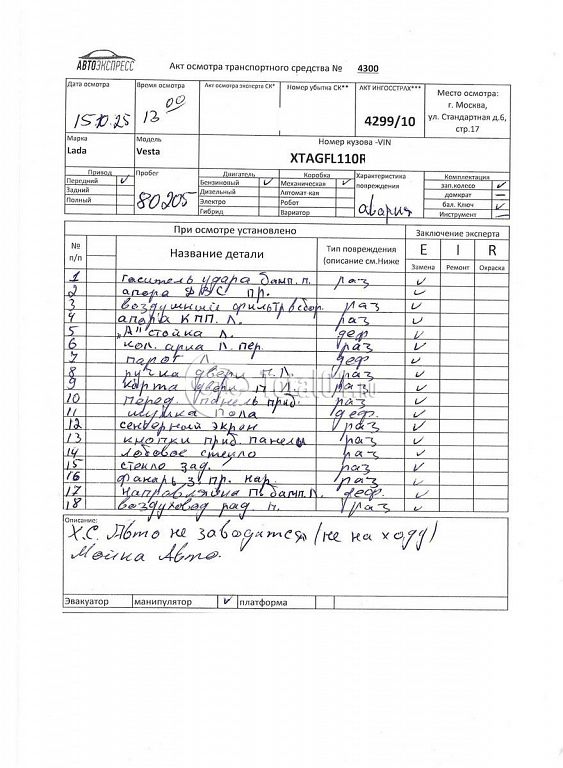 АВТОЭКСПРЕСС
Акт осмотра транспортного средства № 4300
Дата осмотра
15.10.25
Время осмотра
13 00
Акт осмотра эксперта СК*
Номер убытка СК**
АКТ ИНГОССТРАХ***
4299/10
Место осмотра:
г. Москва,
ул. Стандартная д.6,
стр.17
Марка
Lada
Модель
Vesta
Номер кузова -VIN
XTAGFL110R
Привод
Передний ✓
Задний
Полный
Пробег
80205
Двигатель
Бензиновый ✓
Дизельный
Электро
Гибрид
Коробка
Механическая ✓
Автомат-кая
Робот
Вариатор
Характеристика
повреждения
авария
Комплектация
зап.колесо ✓
домкрат –
бал. Ключ ✓
Инструмент –
При осмотре установлено
Заключение эксперта
№ п/п
Название детали
Тип повреждения
(описание см.Ниже
E I R
Замена Ремонт Окраска
1 гаситель удара бамп. п. раз ✓
2 апора ДВС пр. ✓
3 воздушный фильтр в сбор. раз ✓
4 апора КПП. Л. раз ✓
5 "А" стойка Л. деф ✓
6 кол. арка Л. пер. раз ✓
7 парог Л деф ✓
8 ручка двери п.Л. раз ✓
9 карта двери п Л раз ✓
10 перед. панель приб. раз ✓
11 шумка пола деф. ✓
12 сенсорный экран раз ✓
13 кнопки приб. панелы раз ✓
14 лобовое стекло раз ✓
15 стекло зад. раз ✓
16 фанарь з. пр. нар. раз ✓
17 направляйка п. бамп. Л. деф. ✓
18 воздуховод рад. п. раз ✓
Описание:
Х.С. Авто не заводится (не на ходу)
Мойка Авто.
Эвакуатор манипулятор ✓ платформа